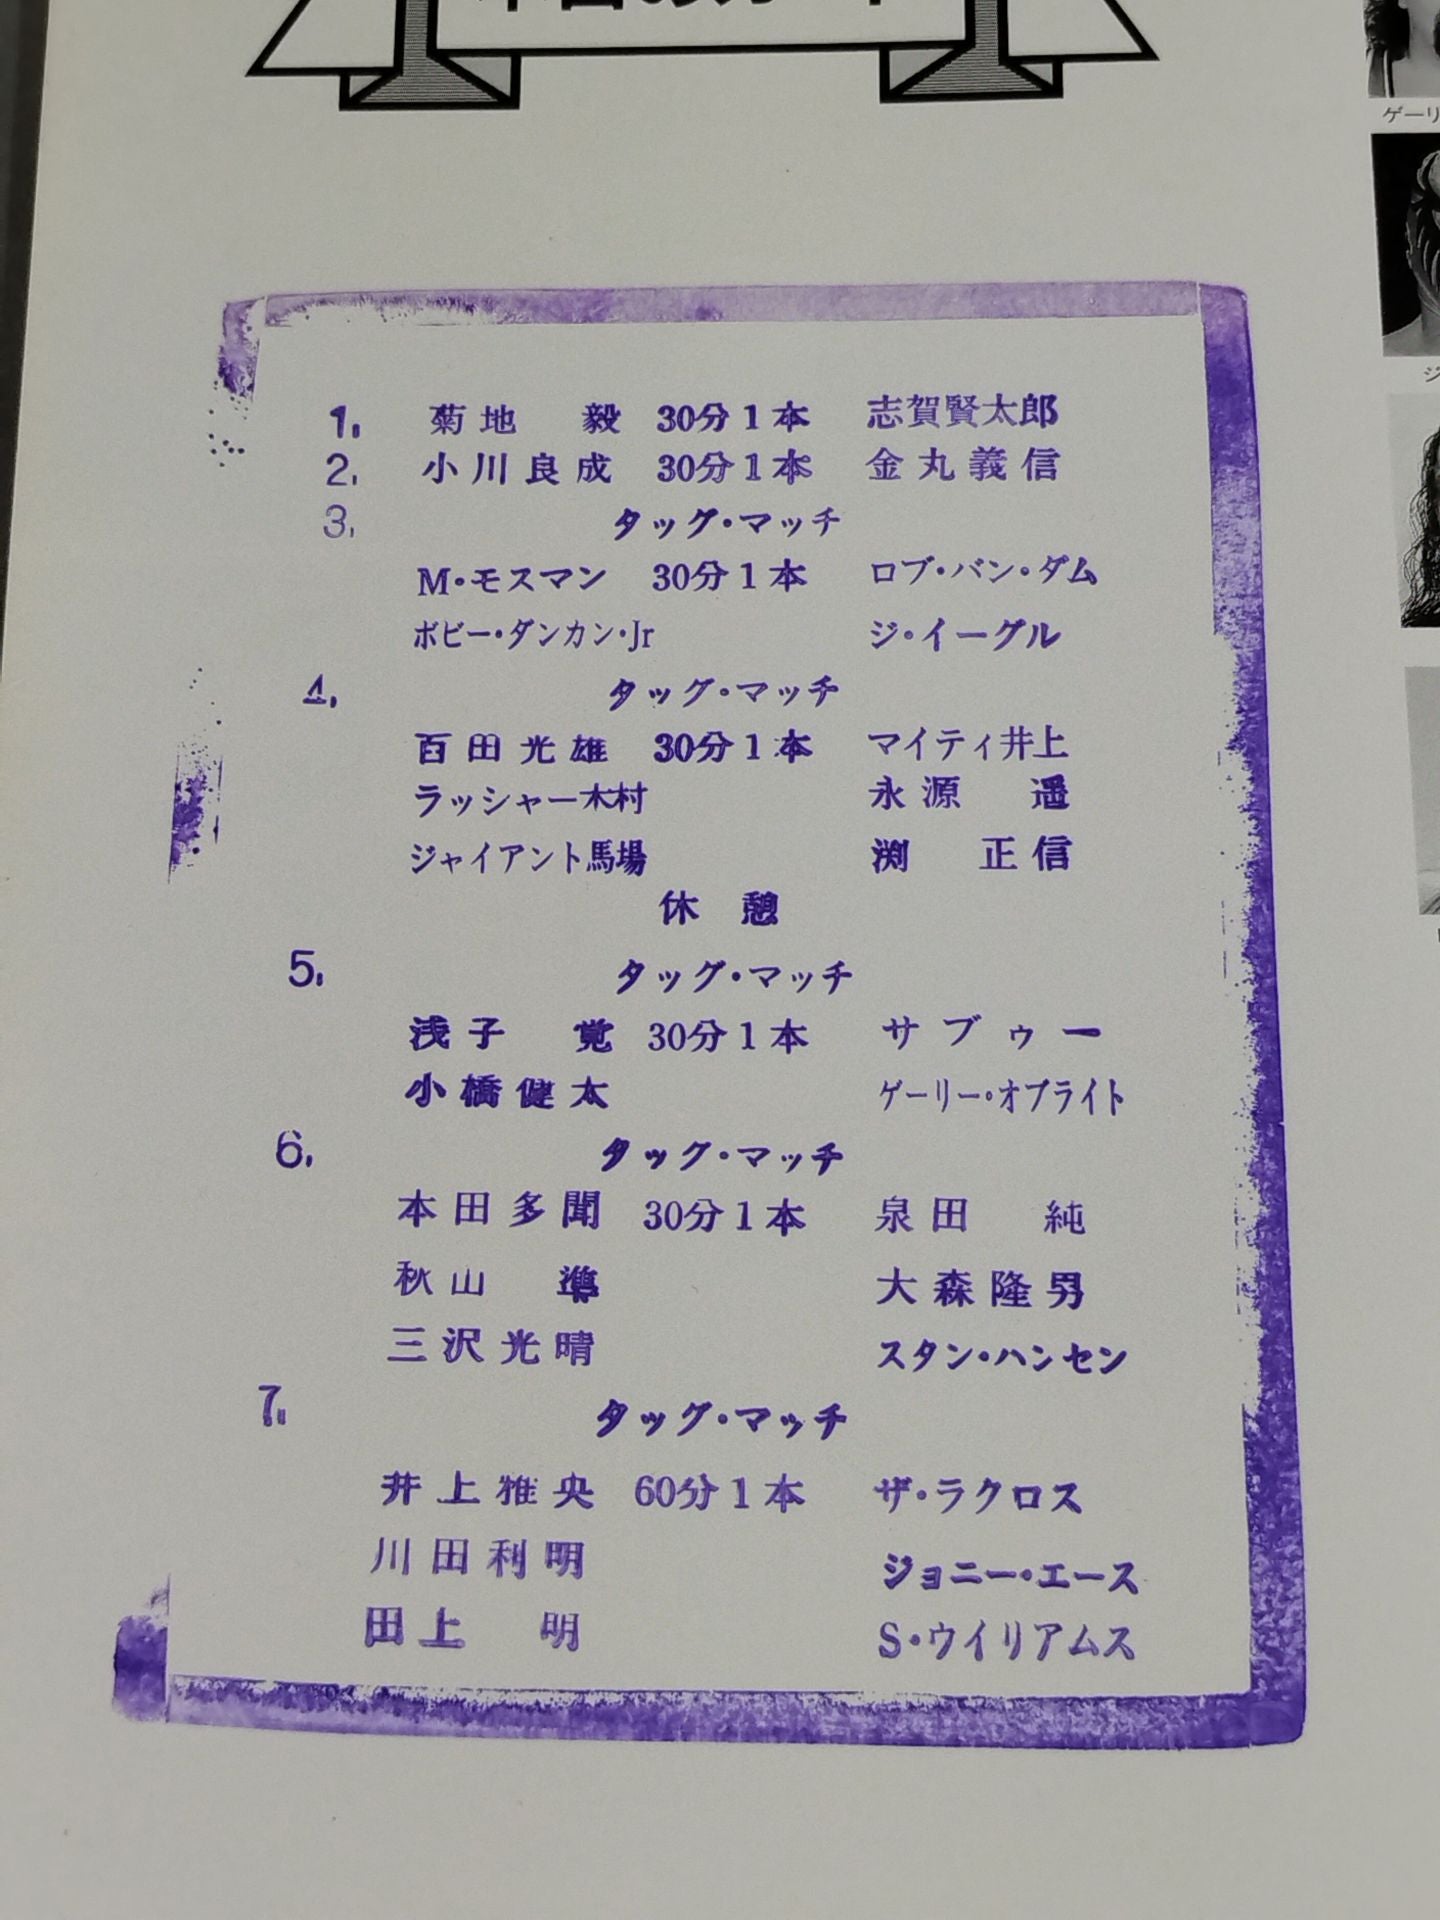 1. 菊地 毅 30分1本 志賀賢太郎
2. 小川良成 30分1本 金丸義信
3. タッグ・マッチ
M・モスマン 30分1本 ロブ・バン・ダム
ボビー・ダンカン・Jr ジ・イーグル
4. タッグ・マッチ
百田光雄 30分1本 マイティ井上
ラッシャー木村 永源 遥
ジャイアント馬場 渕 正信
休憩
5. タッグ・マッチ
浅子 覚 30分1本 サブゥー
小橋健太 ゲーリー・オブライト
6. タッグ・マッチ
本田多聞 30分1本 泉田 純
秋山 準 大森隆男
三沢光晴 スタン・ハンセン
7. タッグ・マッチ
井上雅央 60分1本 ザ・ラクロス
川田利明 ジョニー・エース
田上 明 S・ウイリアムス
ゲーリ
ジ